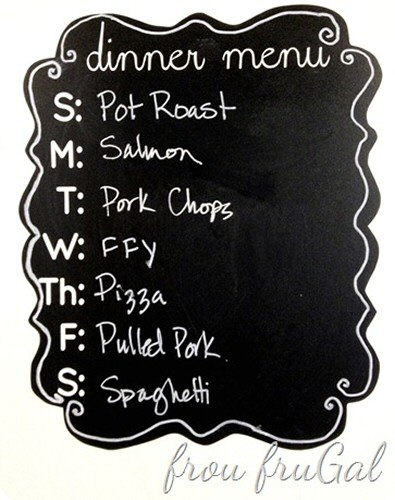 dinner menu
S: Pot Roast
M: Salmon
T: Pork Chops
W: FFY
Th: Pizza
F: Pulled Pork
S: Spaghetti
frou fruGal